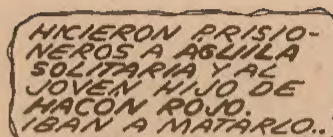 HICIERON PRISIO-
NEROS A AGUILA
SOLITARIA Y AL
JOVEN HIJO DE
HACON ROJO.
IBAN A MATARLO..